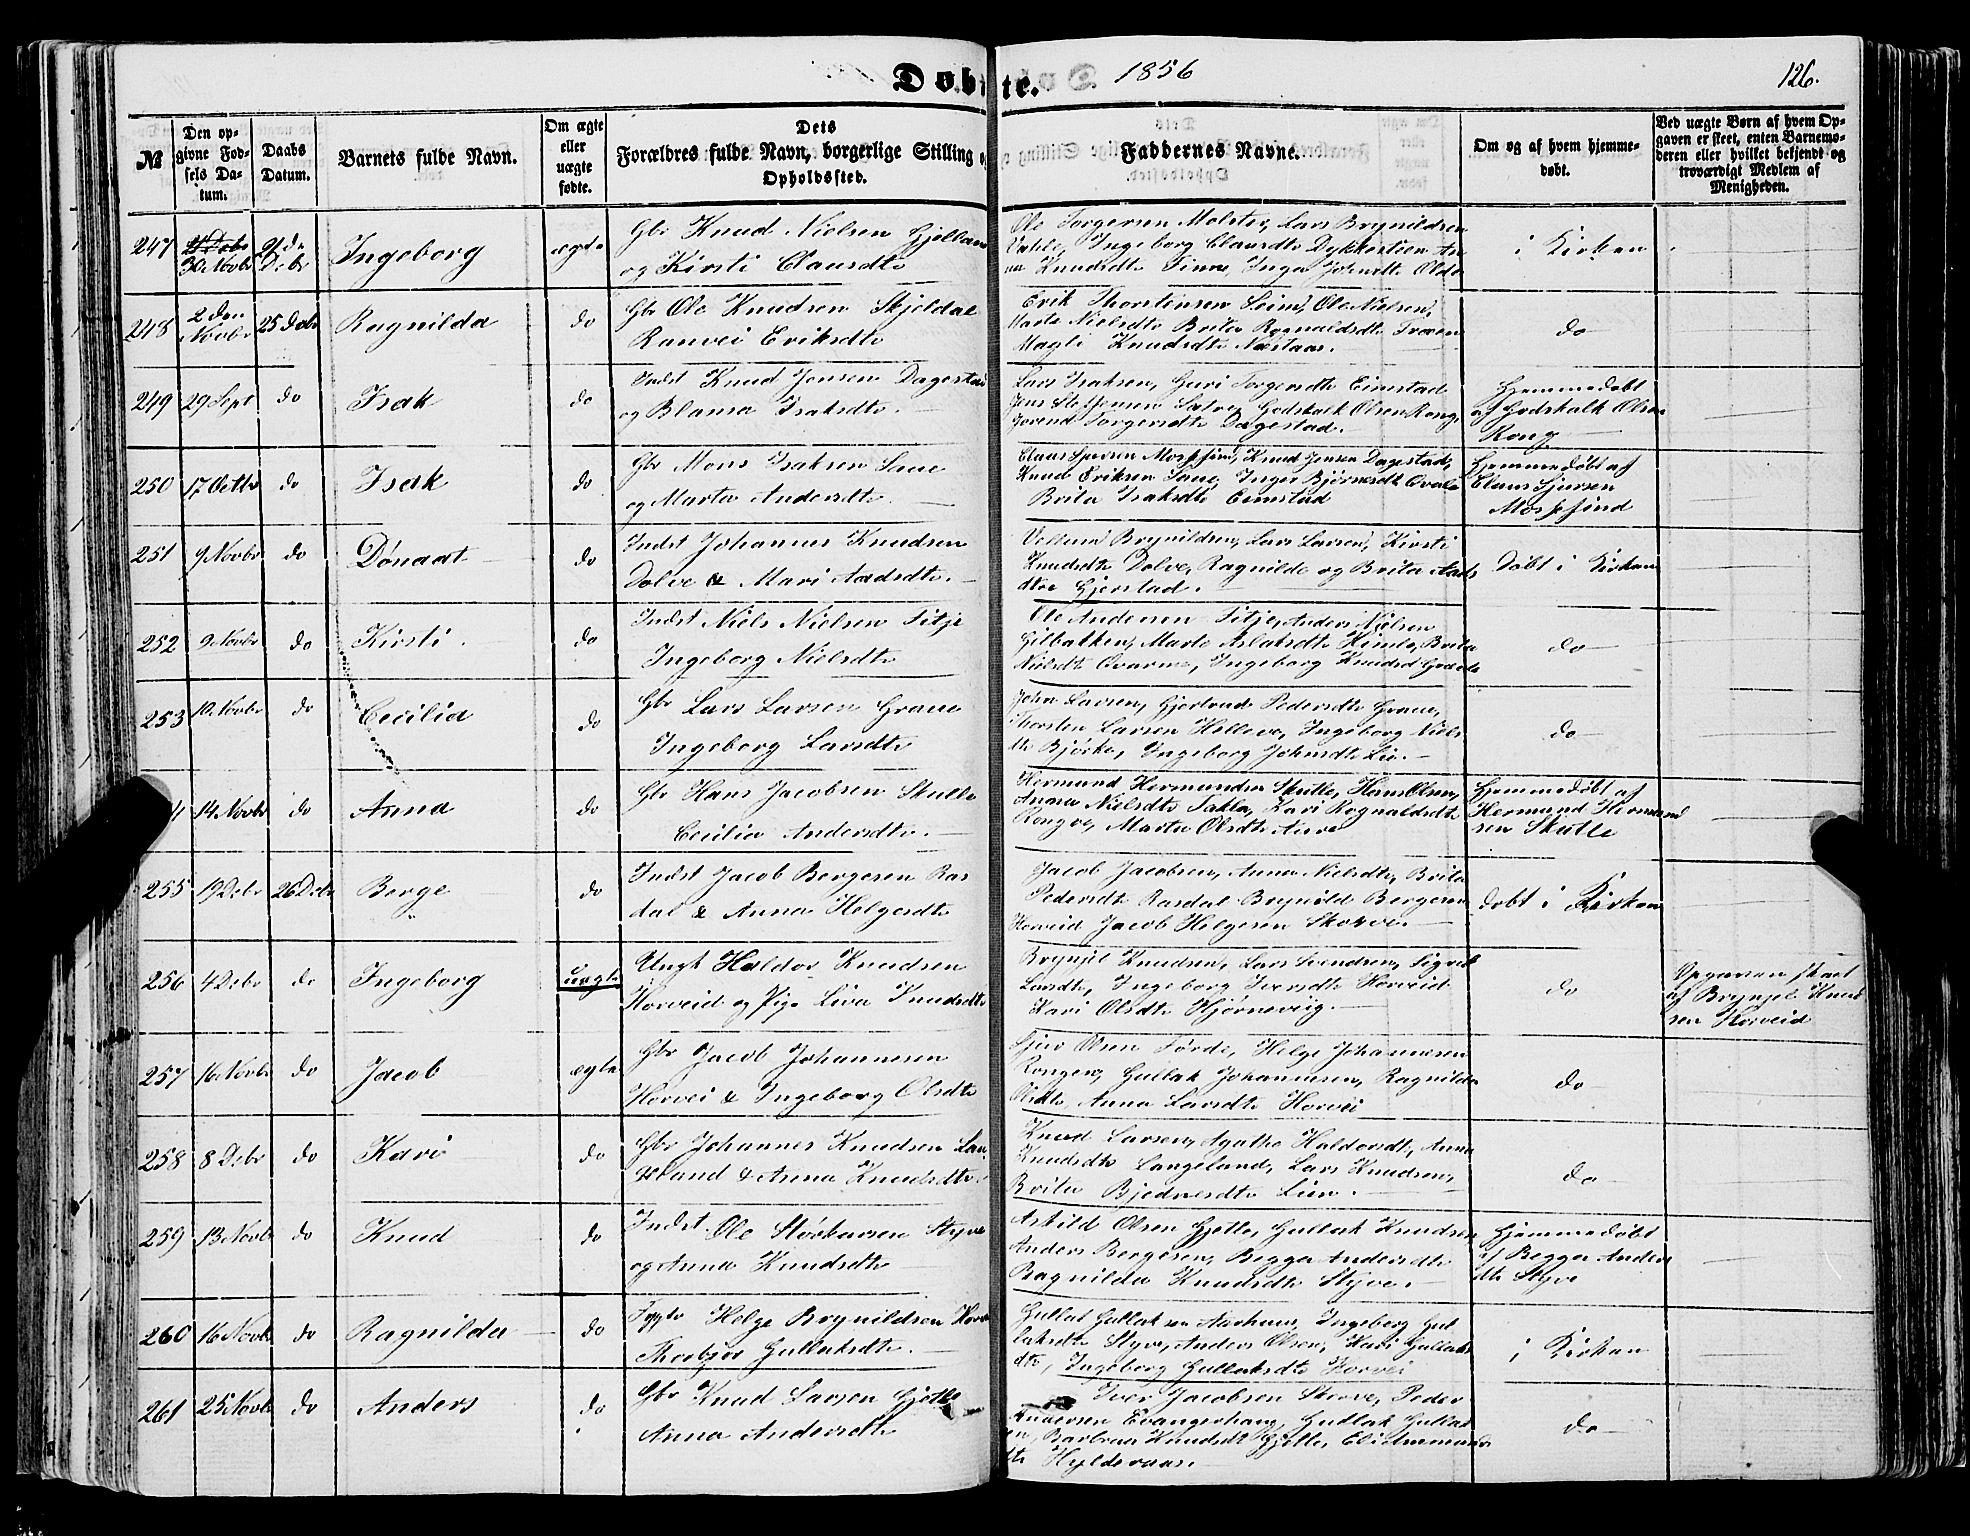 Døbte. 1856 126.
No
Den opgivne Fødsels Datum.
Daabs Datum.
Barnets fulde Navn.
Om ægte eller uægte fødte.
Dets Forældres fulde Navn, borgerlige Stilling og Opholdssted.
Faddernes Navne.
Om og af hvem hjemmedøbt.
Ved uægte Børn af hvem Opgaven er skeet, enten Barnemoderen eller hvilket bekjendt og troværdigt Medlem af Menigheden.
247 30 Novbr 21de Debr Ingeborg ægte Gbr Knud Nielsen
og Kirsti Clausdtr
Ole Torgersen Mølster, Lars Brynildsen
Ingeborg Clausdtr
Knudsdtr Finne, Inga
i Kirken
248 2den Novbr 25 Debr Ragnilda do Gbr Ole Knudsen Skjeldal
Ranvei Eriksdtr
Erik Thorstensen Seim, Ole Nielsen,
Marta Nielsdtr Brita Rognaldsdtr
Magli Knudsdtr
do
249 29 Sept do Isak do Indst Knud Jensen Dagestad
og Blansa Isaksdtr.
Lars Isaksen, Guri Torgersdtr Eimstad
Godskalk Olsen Rong,
Torgersdtr Dagestad.
Hjemmedøbt
af Godskalk Olsen
Rong
250 17 Octbr do Isak do Gbr Mons Isaksen Saue
og Marta Andersdtr.
Claus Sjursen Mossfind, Knud Jensen Dagestad,
Knud Eriksen Saue, Inger Bjørnesdtr
Brita Isaksdtr Eimstad
Hjemmedøbt af
Claus Sjursen
Mossfind
251 7 Novbr do Dønaat do Indst Johannes Knudsen
Dolve & Mari Aadsdtr.
Brynildsen, Lars Larsen, Kirsti
Knudsdtr Dolve, Ragnilde og Brita Aads
dtre Gjerstad.
Døbt i Kirken
252 9 Novbr do Kirsti. do Indst Niels Nielsen Fitje
Ingeborg Nielsdtr
Ole Andersen Fitje, Anders Nielsen
Gilbakken, Marte Aslaksdtr Himle, Brita
Nielsdtr Ingeborg Knudsd
do
253 10 Novbr do Cecilia do Gbr Lars Larsen Graue
Ingeborg Larsdtr
John Larsen, Gjertrud Pedersdtr Graue,
Thorsten Larsen Helleve, Ingeborg Niels
dtr Bjørke, Ingeborg Johnsdtr Lie.
do
14 Novbr do Anna do Gbr Hans Jacobsen Skulle
Cecilia Andersdtr.
Hermund Hermundsen Skutle, Hans Olsen,
Anna Nielsdtr Takla, Kari Rognaldsdtr
Rongve, Marta Olsdtr
Hjemmedøbt af
Hermund Hermund
sen Skutle
255 19 Debr 26 Debr Berge do Indst Jacob Bergesen Ras
dal & Anna Helgesdtr
Jacob Jacobsen, Anna Nielsdtr, Brita
Pedersdtr Rasdal Brynild Bergesen
Horveid Jacob Helgesen Skorve.
døbt i Kirken
256 4 Debr do Ingeborg uægte Ungk Haldor Knudsen
Horveid og Pige Liva Knudsdtr
Brynjel Knudsen, Lars Svendsen, Sigrid
Larsdtr, Ingeborg Iversdtr Horveid
Kari Olsdtr Hjørneviig.
do
Opgaven skeet
af Brynjel Knud
sen Horveid
257 16 Novbr do Jacob ægte Gbr Jacob Johannesen
Horvei & Ingeborg Olsdtr
Sjur Olsen Førde, Helge Johannesen
Rongen, Gullak Johannesen, Ragnilda
Anna Larsdtr Horvei
do
258 8 Debr do Kari do Gbr Johannes Knudsen Lan
geland & Anna Knudsdtr.
Knud Larsen, Agatha Haldorsdtr, Anna
Knudsdtr Langeland, Lars Knudsen,
Brita Lien.
do
259 13 Novbr do Knud do Indst Ole Størkersen Styve
og Anna Knudsdtr
Askild Olsen Gjelle, Gullak Knudsen
Anders Bergesen, Begga Andersdtr
Ragnilda Knudsdtr Styve.
Hjemmedøbt
af Begga Anders
dtr Styve
260 16 Novbr do Ragnilda do Helge Brynildsen
Thorbjør Gullaksdtr.
Gullak Gullaksen Aarhuus, Ingeborg Gul
laksdtr Styve, Anders Olsen, Kari Gullaks
dtr, Ingeborg Gullaksdtr Horvei
i Kirken
261 25 Novbr do Anders do Gbr Knud Larsen Gjelle
Anna Andersdtr
Iver Jacobsen Skorve, Peder
Andersen Evangerhaug, Gullak Gullak
sen, Barbraa Knudsdt Gjelle,
dtr
do